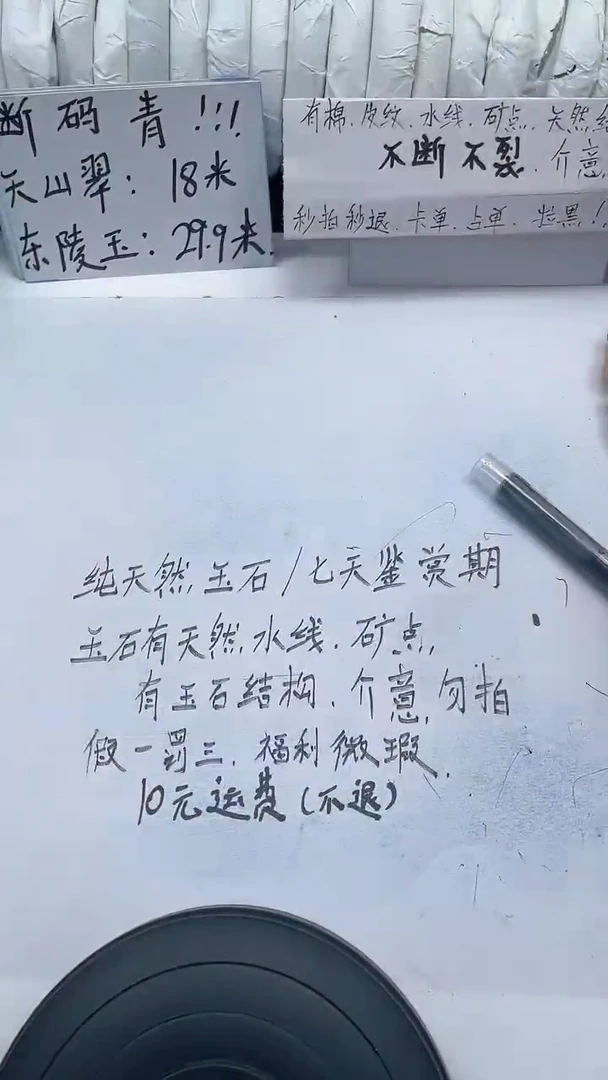 断码青!!!
天山翠：18米
东陵玉：29.9米.
有棉.皮纹.水线.矿点.天然
不断不裂.介意
秒拍秒退.卡单.占单.拉黑!
纯天然玉石/七天鉴赏期
玉石有天然水线.矿点,
有玉石结构.介意勿拍
假一罚三.福利微瑕,
10元运费(不退)